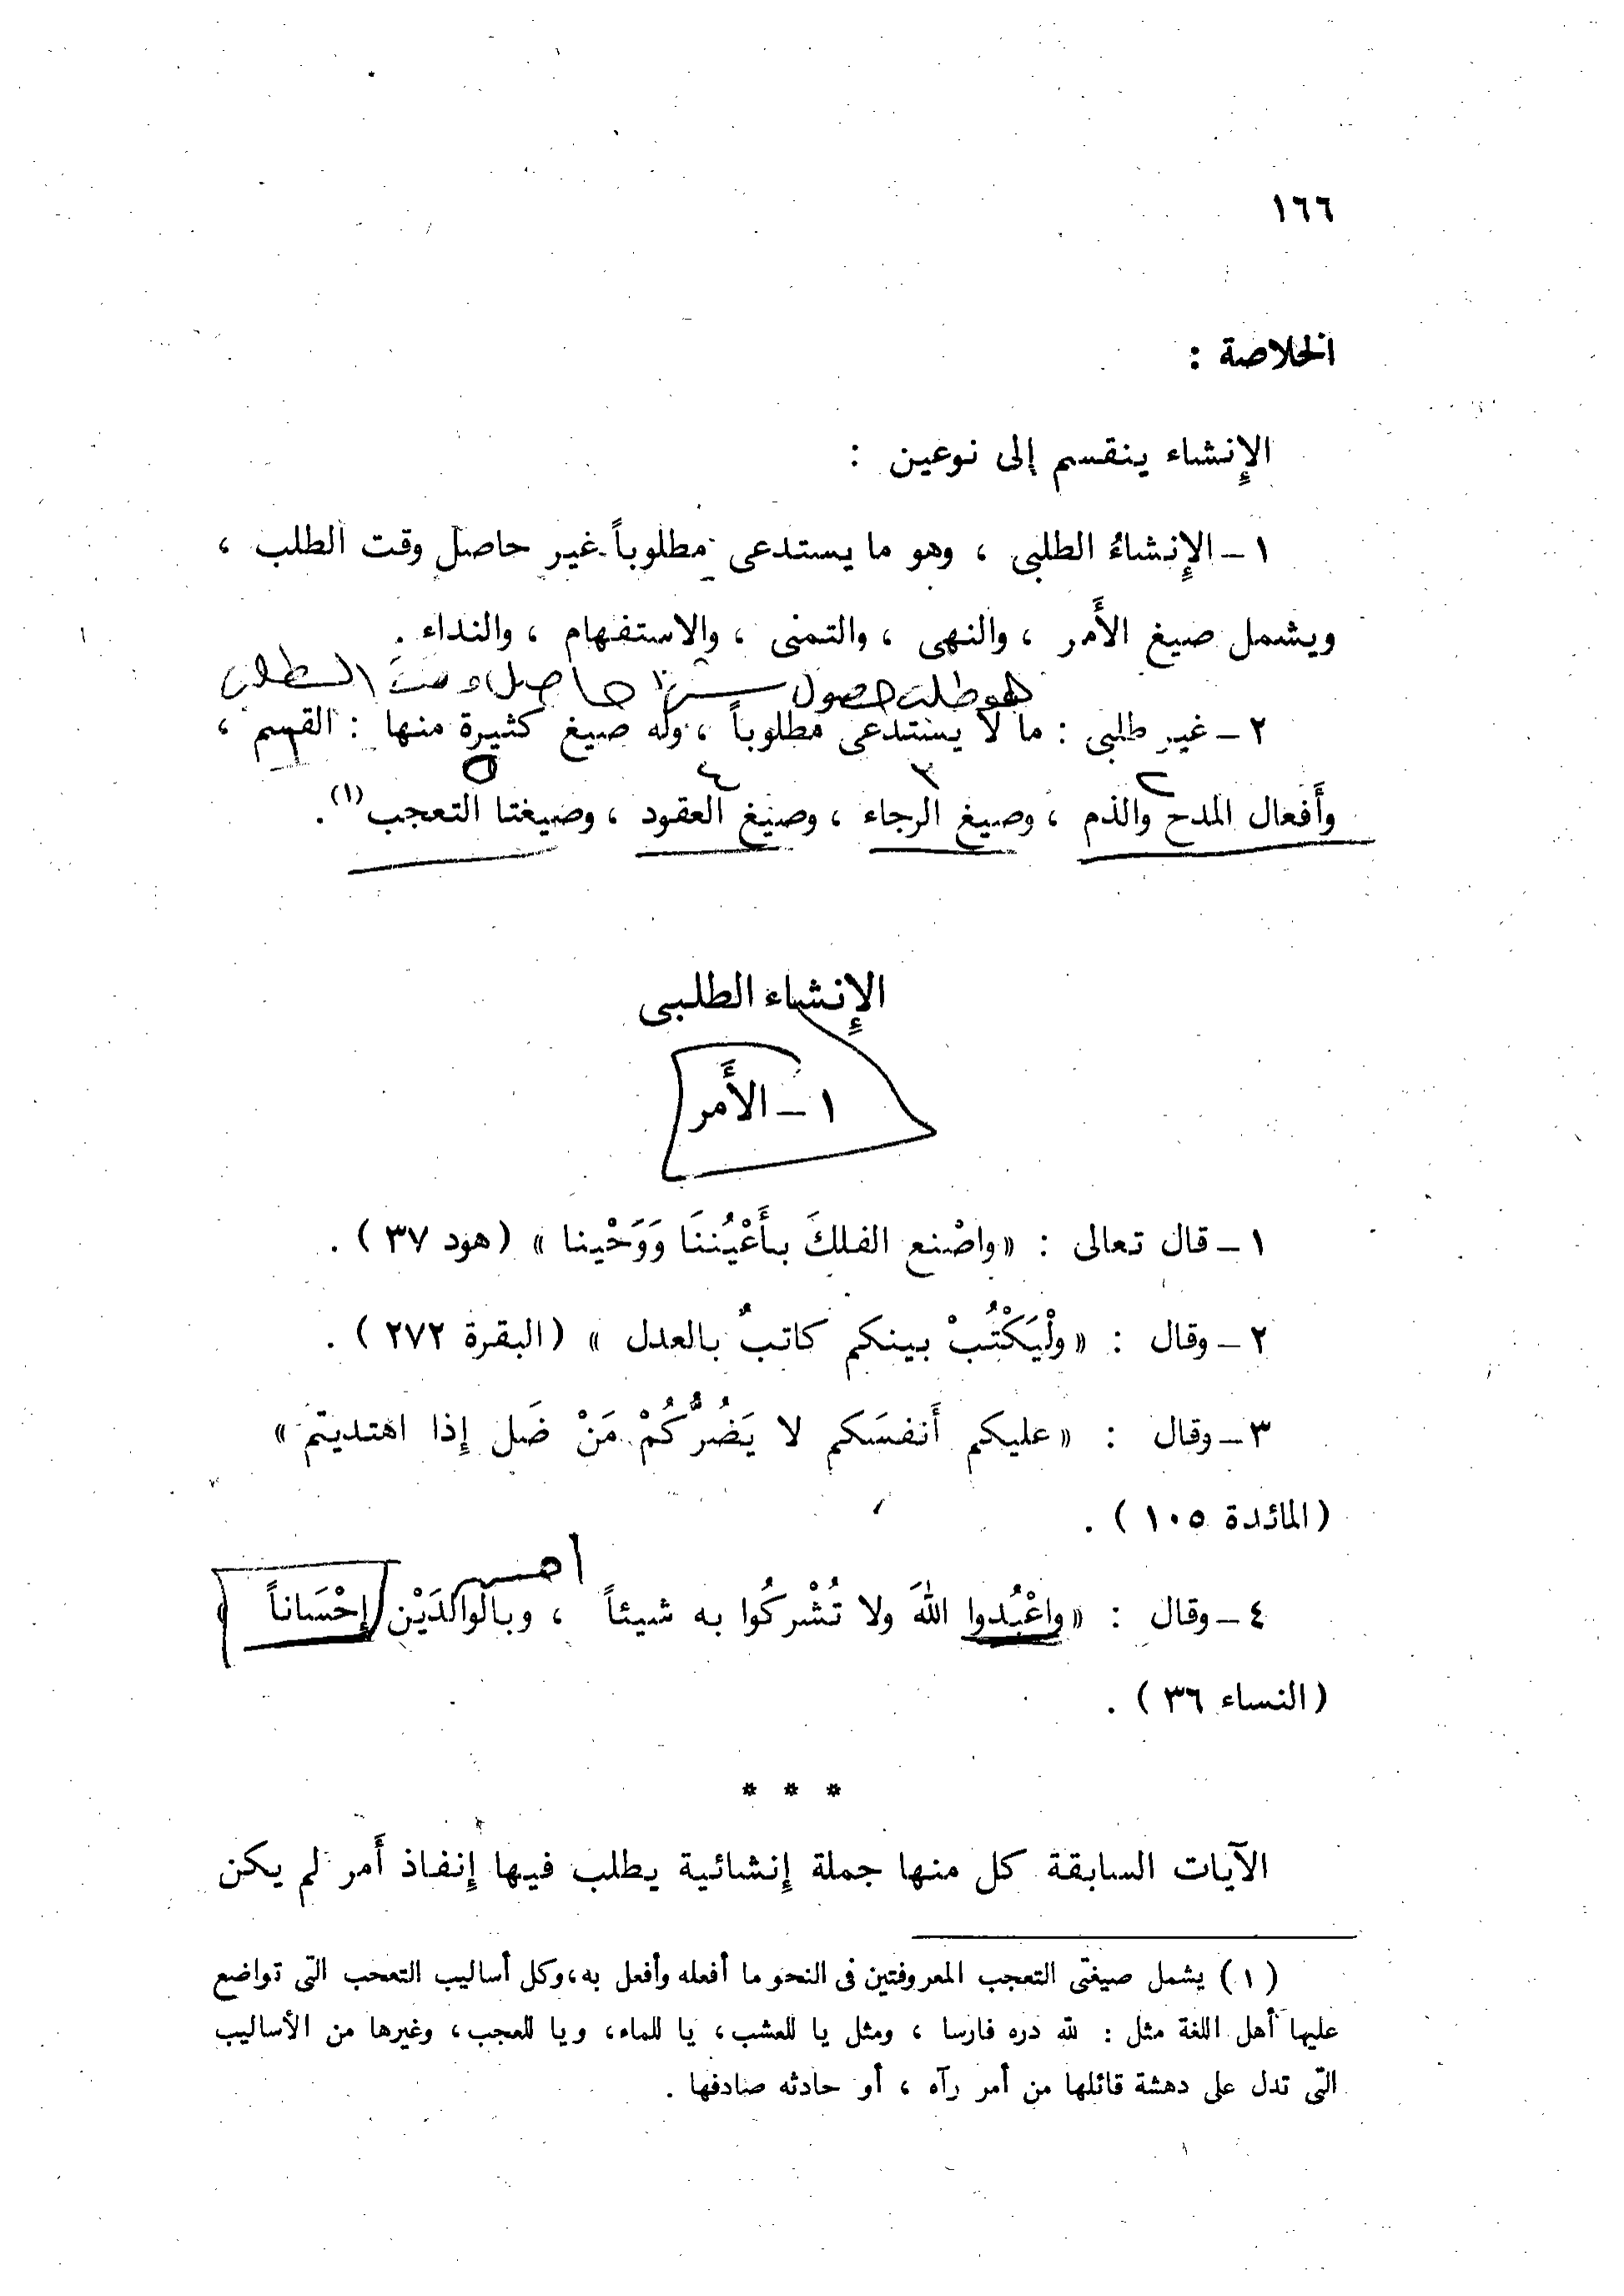 ١٦٦
الخلاصة :
الإِنشاء ينقسم إلى نوعين :
١ – الإِنشاءُ الطلبى ، وهو ما يستدعى مطلوباً غير حاصل وقت الطلب ،
ويشمل صيغ الأَمر ، والنهى ، والتمنى ، والاستفهام ، والنداء .
هو طلب حصول حاصل وقت الطلب
٢ – غير طلبى : ما لا يستدعى مطلوباً ، وله صيغ كثيرة منها : القسم ،
١ ٢ ٣ ٤ ٥
وأَفعال المدح والذم ، وصيغ الرجاء ، وصيغ العقود ، وصيغتا التعجب (١).
الإِنشاء الطلبى
١ – الأَمر
١ – قال تعالى : « واصْنع الفلكَ بأَعْيُننَا وَوَحْينا » (هود ٣٧ ) .
٢ – وقال : « ولْيَكْتُبْ بينكم كاتبٌ بالعدل » (البقرة ٢٧٢ ) .
٣ – وقال : « عليكم أَنفسَكم لا يَضُرُّكُمْ مَنْ ضَل إِذا اهتديتم »
(المائدة ١٠٥ ) .
٤ – وقال : « واعْبُدوا اللهَ ولا تُشْركُوا به شيئاً ، وبالوالدَيْن إحْسَاناً »
(النساء ٣٦ ) .
* * *
الآيات السابقة كل منها جملة إِنشائية يطلب فيها إِنفاذ أَمر لم يكن
(١) يشمل صيغتى التعجب المعروفتين فى النحو ما أفعله وأفعل به، وكل أساليب التعجب التى تواضع
عليها أهل اللغة مثل : لله دره فارسا ، ومثل يا للعشب، يا للماء، ويا للعجب، وغيرها من الأساليب
التى تدل على دهشة قائلها من أمر رآه ، أو حادثه صادفها .